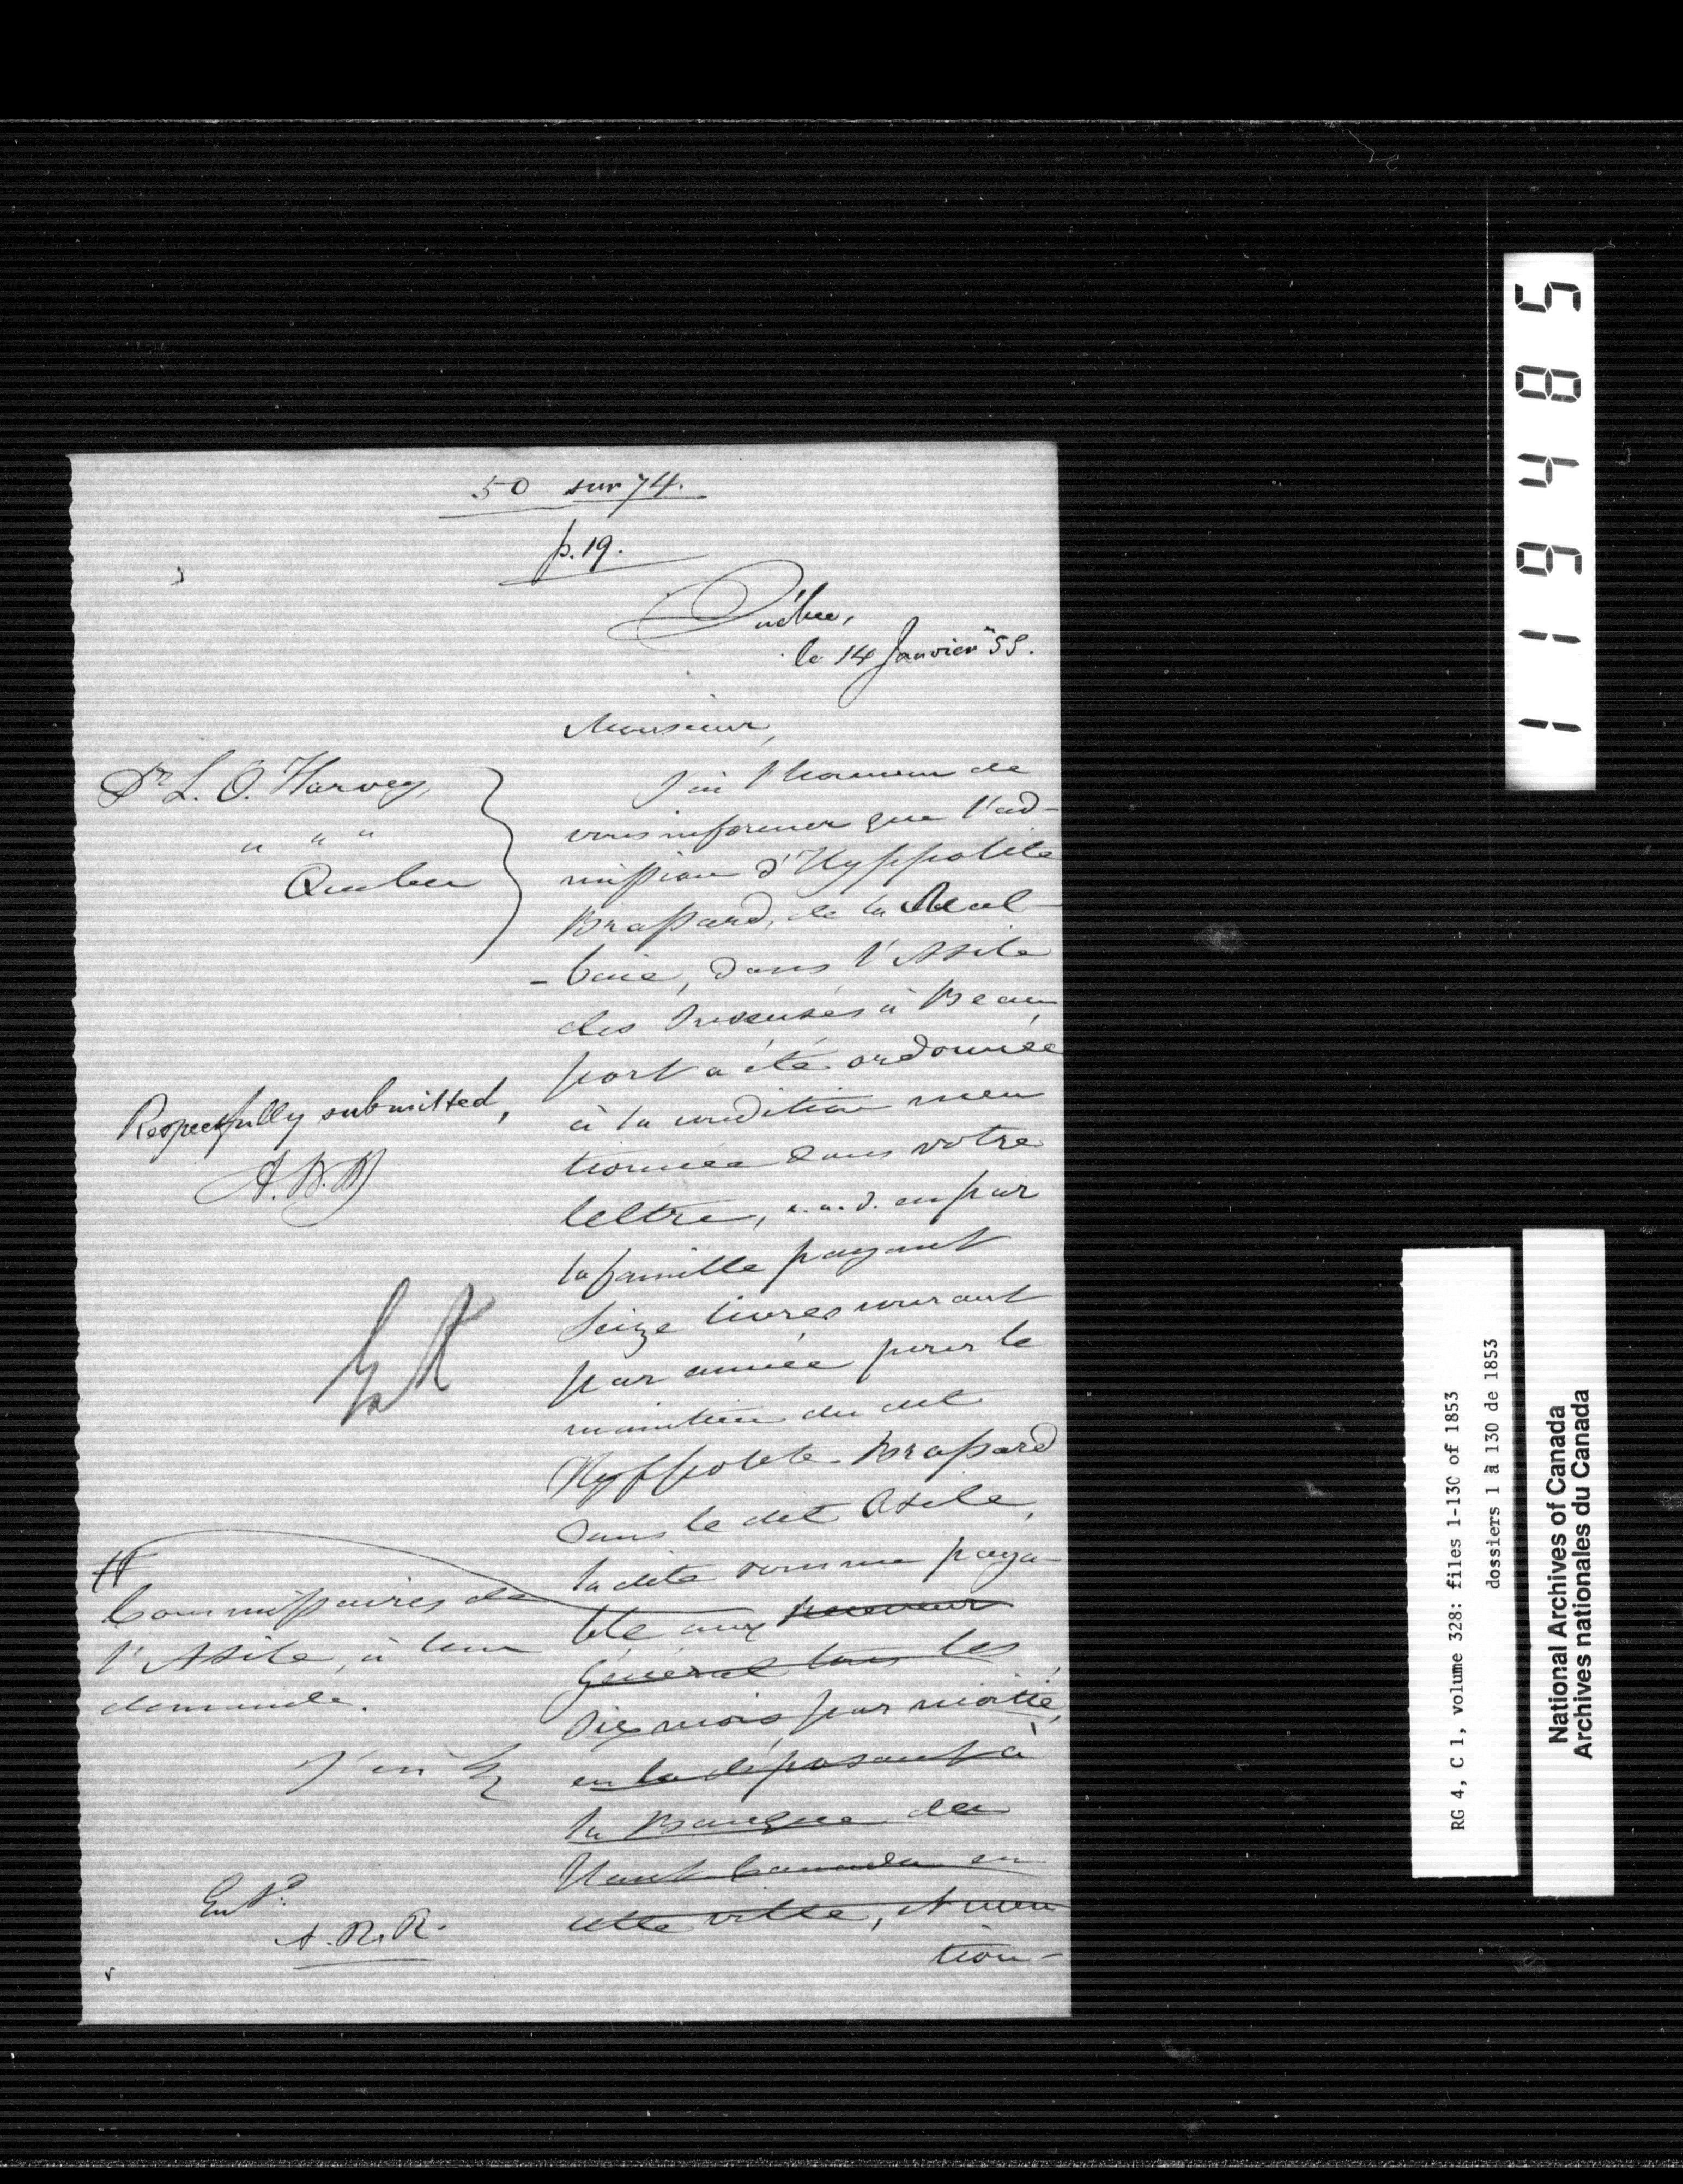 50 sur 74.
p. 19.
Québec,
le 14 Janvier "55.
Monsieur,
Dr L. O. Harvey,
" " "
Quebec
J'ai l'honneur de
vous informer que l'ad-
mission d'Hyppolite
Brassard, de la Mal-
-baie, dans l'Asile
des Insensés à Beau
port a été ordonnée
à la condition men
tionnée dans votre
lettre, c.a.d. en par
la famille payant
Seize livres courant
par année pour le
maintien du dit
Hyppolite Brassard
dans le dit Asile,
la dite somme paya-
ble aux Receveur
Général tous les
Six mois par moitié,
en la déposant à
la Banque du
Haut Canada en
cette ville, et men
tion-
Respectfully submitted,
A. N. M
#
Commissaires de
l'Asile, à leur
demande.
J'ai &
Entd.
A. R. R.
119485
RG 4, C 1, volume 328: files 1-130 of 1853
dossiers 1 à 130 de 1853
National Archives of Canada
Archives nationales du Canada